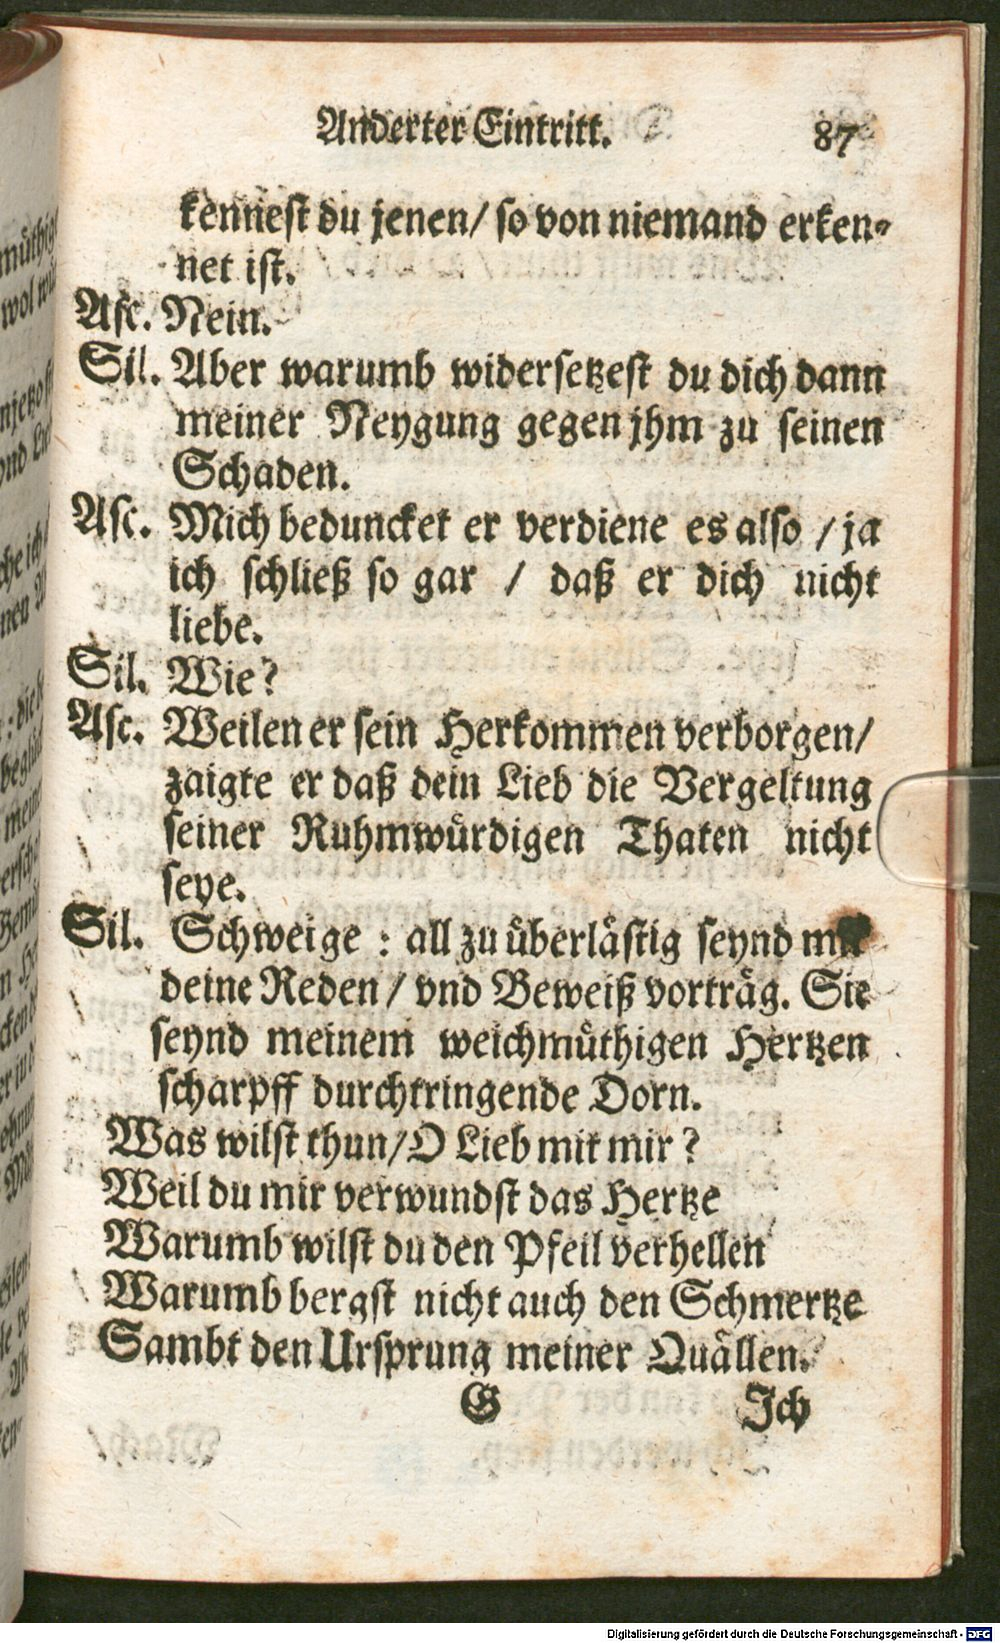 Anderter Eintritt. 87
kennest du jenen/ so von niemand erken-
net ist.
Asc. Nein.
Sil. Aber warumb widersetzest du dich dann
meiner Neygung gegen jhm zu seinen
Schaden.
Asc. Mich beduncket er verdiene es also / ja
ich schließ so gar / daß er dich nicht
liebe.
Sil. Wie?
Asc. Weilen er sein Herkommen verborgen/
zaigte er daß dein Lieb die Vergeltung
seiner Ruhmwürdigen Thaten nicht
seye.
Sil. Schweige : all zu überlästig seynd mir
deine Reden/ vnd Beweiß vorträg. Sie
seynd meinem weichmüthigen Hertzen
scharpff durchtringende Dorn.
Was wilst thun/ O Lieb mit mir?
Weil du mir verwundst das Hertze
Warumb wilst du den Pfeil verhellen
Warumb bergst nicht auch den Schmertze
Sambt den Ursprung meiner Quällen.
G Ich
Digitalisierung gefördert durch die Deutsche Forschungsgemeinschaft - DFG